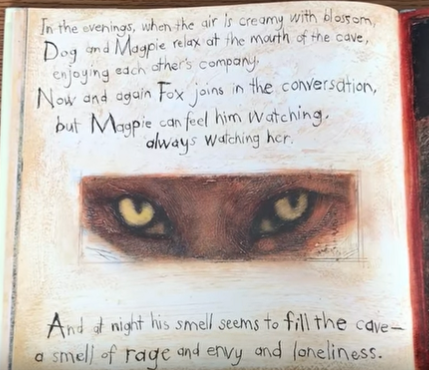 In the evenings, when the air is creamy with blossom,
Dog and Magpie relax at the mouth of the cave,
enjoying each other's company.
Now and again Fox joins in the conversation,
but Magpie can feel him watching,
always watching her.
And at night his smell seems to fill the cave—
a smell of rage and envy and loneliness.